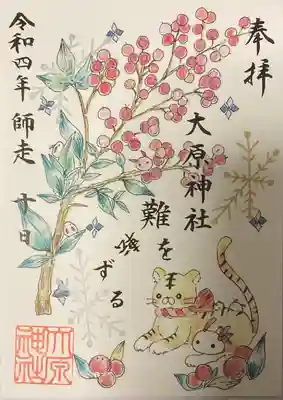 奉拝
大原神社
難を転ずる
令和四年 師走 廿日
大原神社